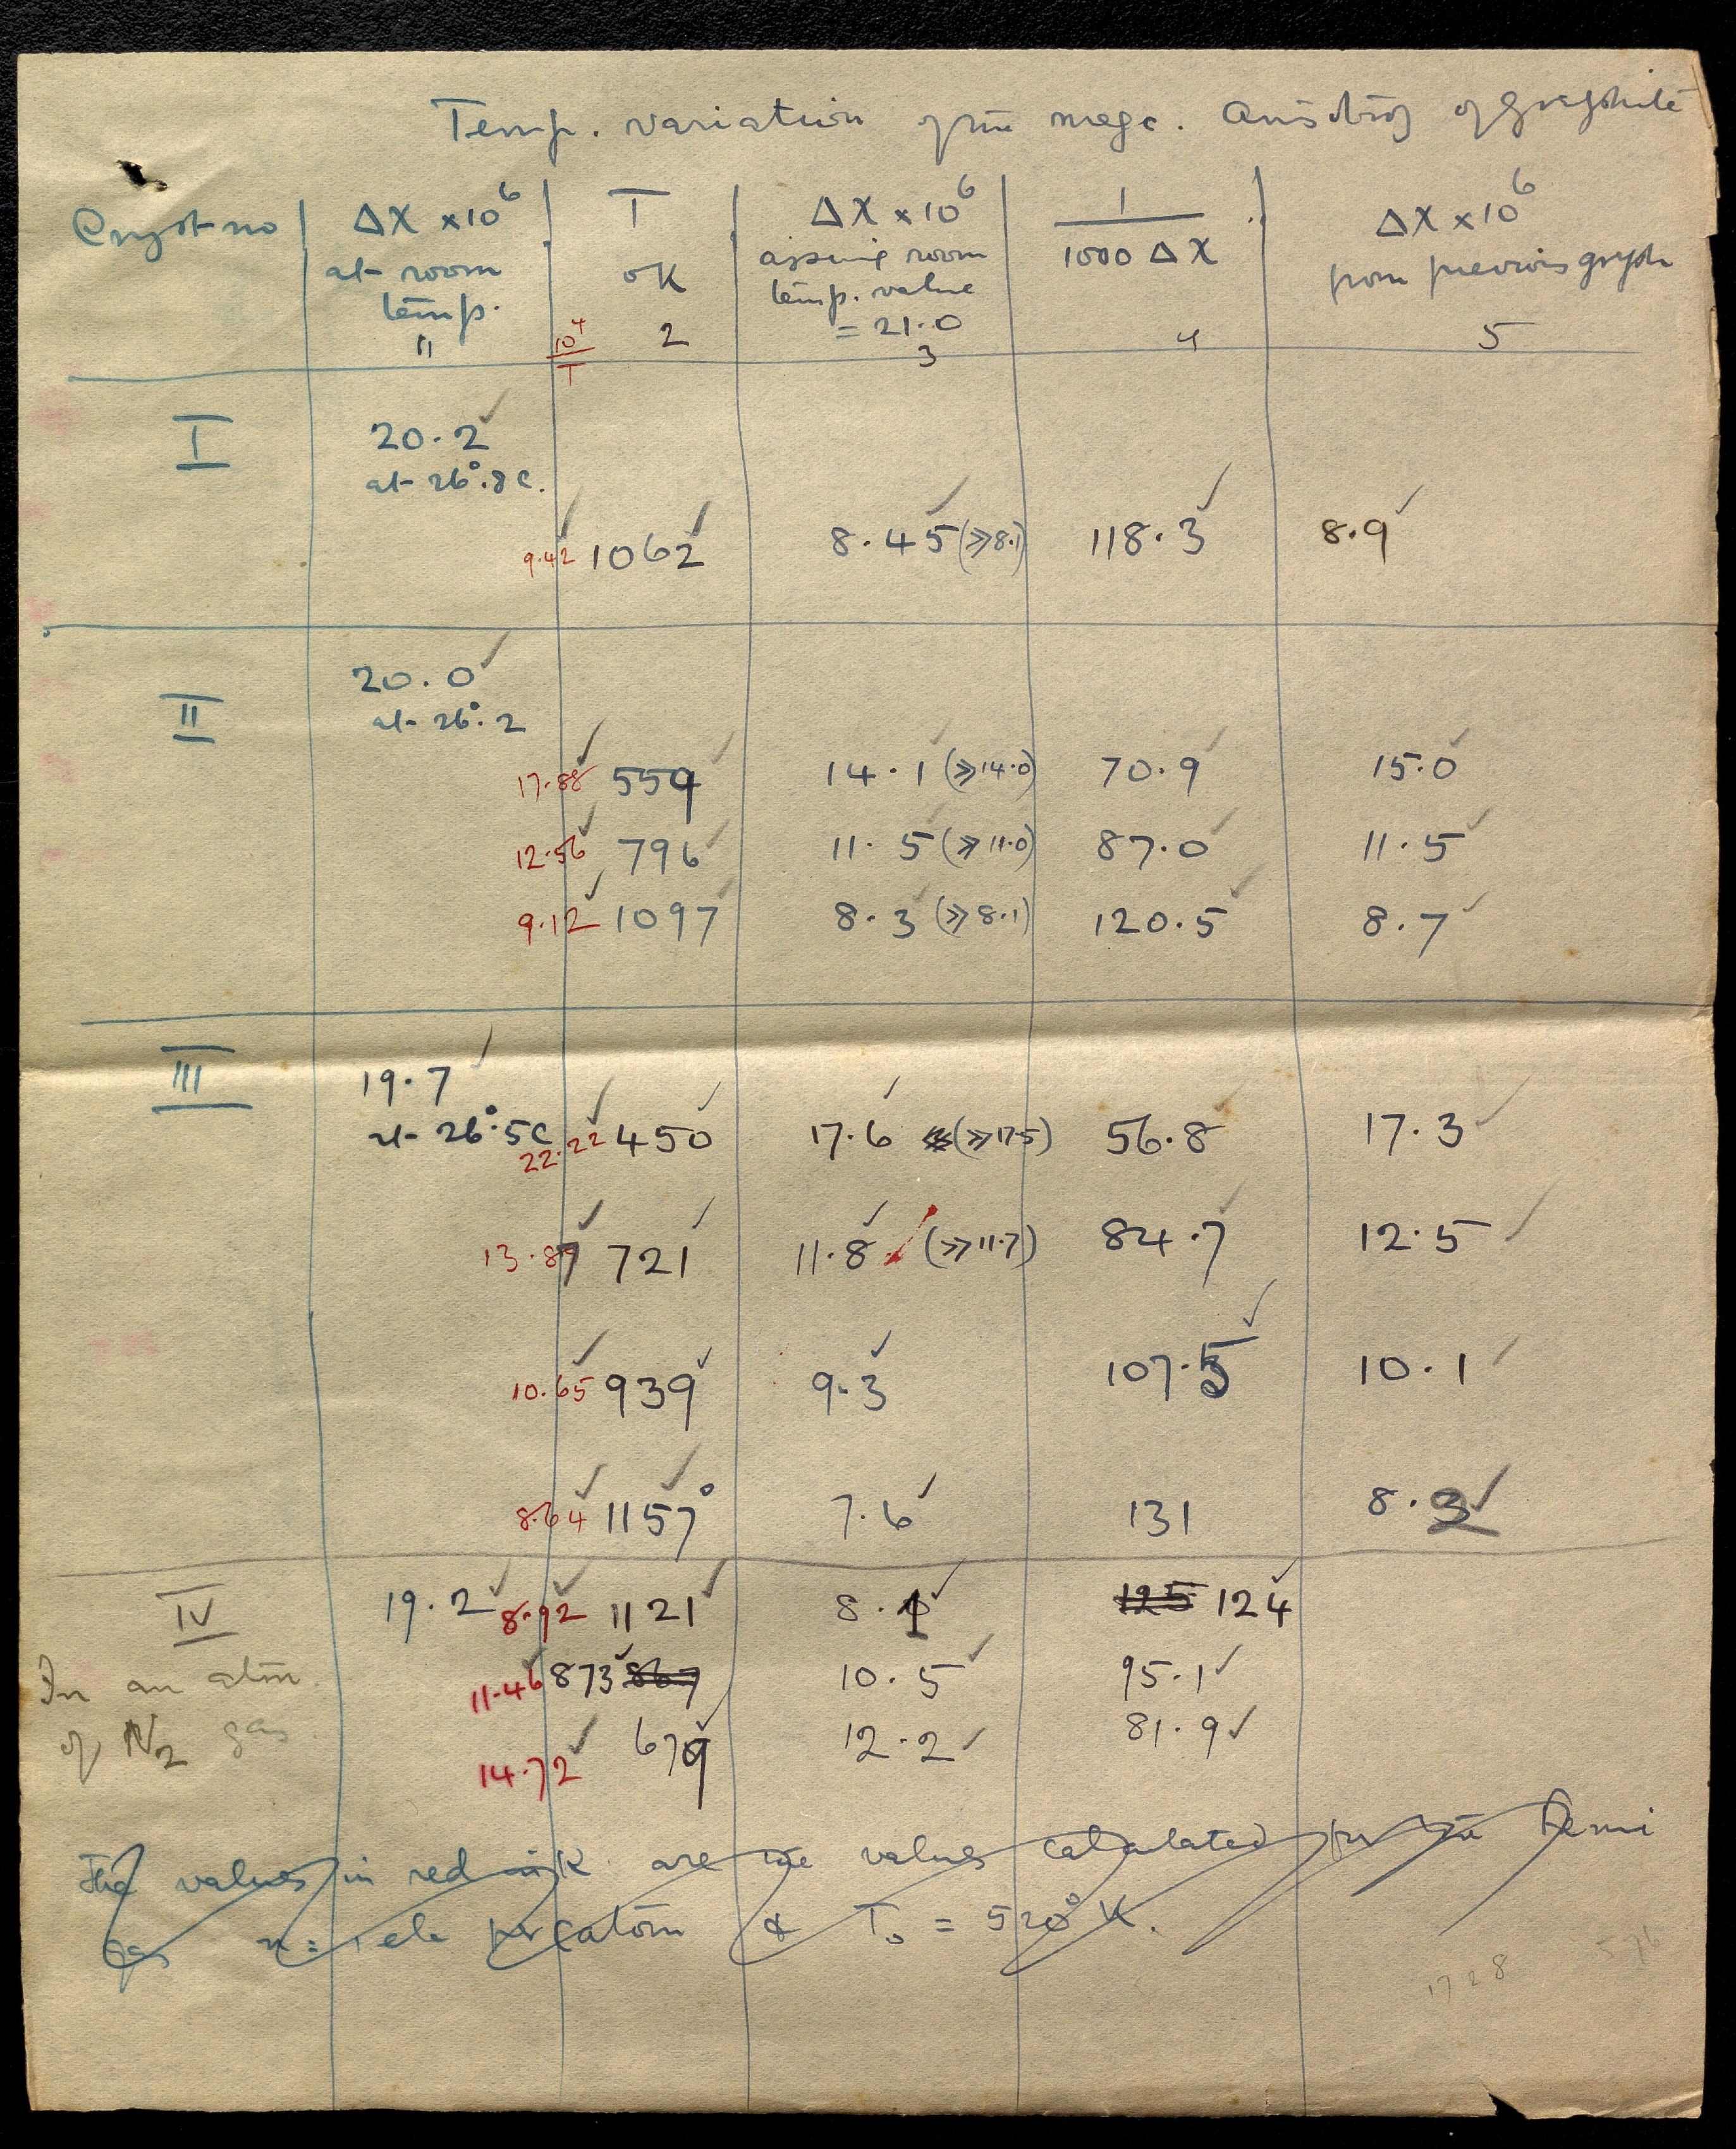 Temp. variation of the magc. anisotropy of graphite
Cryst no | ΔX ×10⁶ at room temp. 11 | 10⁴/T | T oK 2 | ΔX ×10⁶ assuming room temp. value = 21.0 3 | 1/1000 ΔX 4 | ΔX ×10⁶ from previous graph 5
I 20.2 ✓
at 26°.8 C.
9.42 ✓ 1062 ✓ 8.45 ✓ (⩾8.1) 118.3 ✓ 8.9 ✓
II 20.0 ✓
at 26°.2
17.88 ✓ 559 ✓ 14.1 ✓ (⩾14.0) 70.9 ✓ 15.0 ✓
12.56 ✓ 796 ✓ 11.5 ✓ (⩾11.0) 87.0 ✓ 11.5 ✓
9.12 ✓ 1097 ✓ 8.3 ✓ (⩾8.1) 120.5 ✓ 8.7 ✓
III 19.7 ✓
at 26°.5 C 22.22 ✓ 450 ✓ 17.6 ✓ (⩾17.5) 56.8 ✓ 17.3 ✓
13.87 ✓ 721 ✓ 11.8 ✓ (⩾11.7) 84.7 ✓ 12.5 ✓
10.65 ✓ 939 ✓ 9.3 ✓ 107.5 ✓ 10.1 ✓
8.64 ✓ 1157° ✓ 7.6 ✓ 131 8.2 ✓
IV 19.2 ✓ 8.92 ✓ 1121 ✓ 8.1 ✓ 125 124 ✓
In an atm. 11.46 ✓ 873 ✓ 867 10.5 ✓ 95.1 ✓
of N₂ gas. 14.72 ✓ 679 ✓ 12.2 ✓ 81.9 ✓
The values in red ink are the values calculated for the Fermi
gas n = 1 ele per atom & T₀ = 520° K.
1728